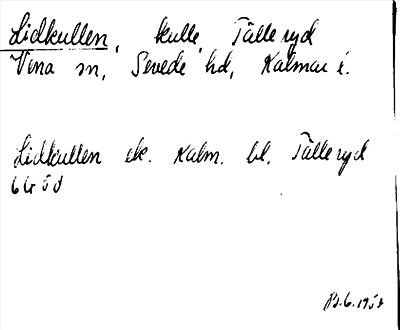 Lidkullen, kulle, Tälleryd
Vena sn, Sevede hd, Kalmar l.
Lidkullen ek. Kalm. bl. Tälleryd
6G5d
B.G.1958